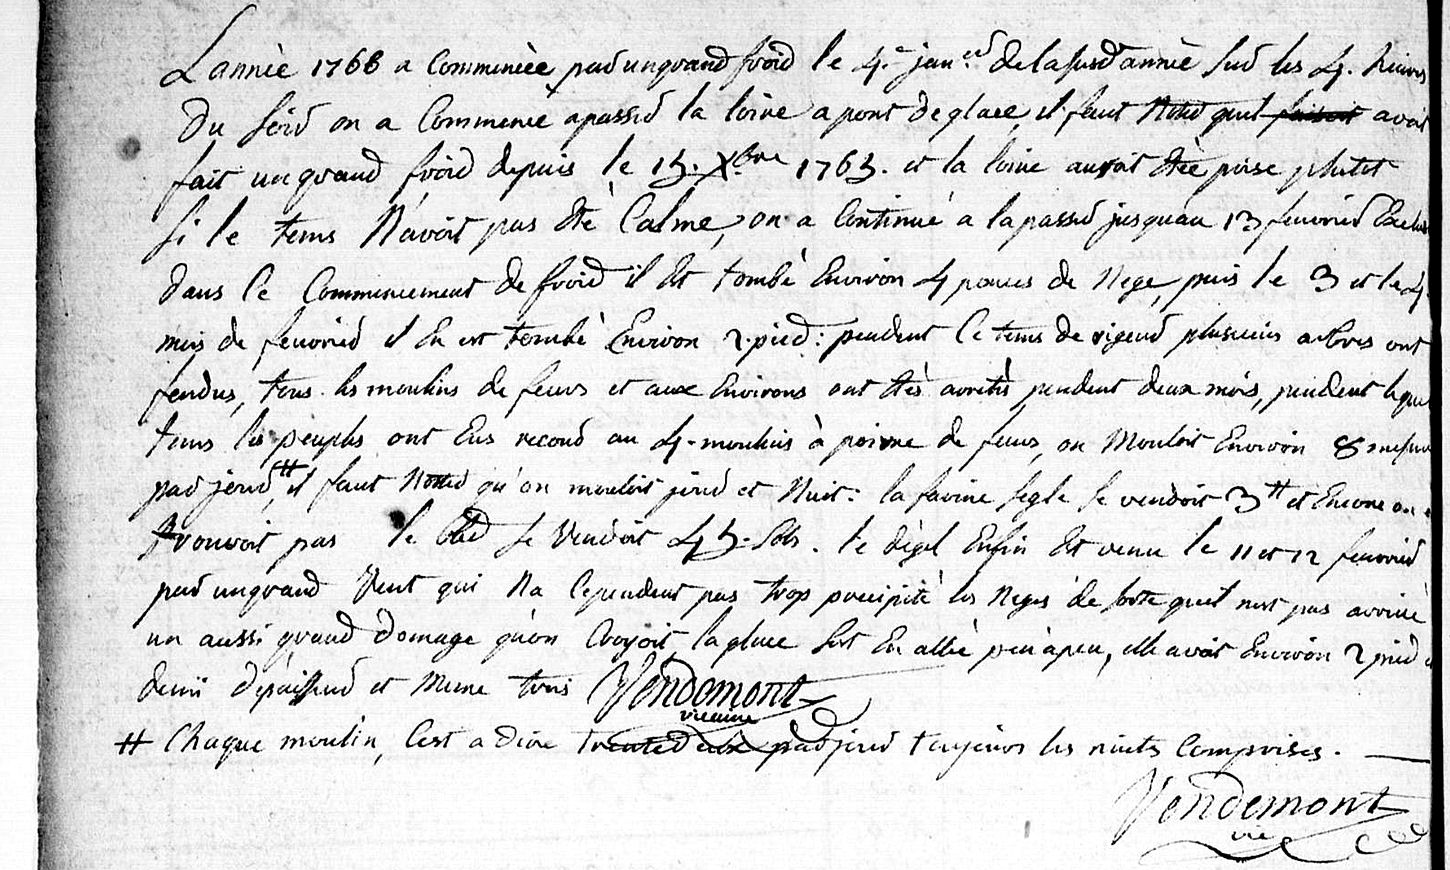 L'anneè 1766 a Commencèe par un grand froid le 4.e janv.er de la susd. anneè sur les 4. heures
du soir on a Commencé a passer la loire a pont de glace, il faut Noter quil faisoit avoit
fait un grand froid depuis le 15. Xbre 1765. et la loire auroit étèe prise plutot
si le tems N'avoit pas étè Calme, on a Continué a la passer jusquau 13 fevrier
dans Ce Commencement de froid il est tombè Environ 4 pouces de Nege, puis le 3 et le 4.
mois de fevrier il En est tombè Environ 2. pied: pendent Ce tems de rigeur plusieurs arbres ont
fendus, tous les moulins de feurs et aux Environs ont étès arretès pendent deux mois, pendent lequel
tems les peuples ont Eus recour au 4. moulins à de feurs, on Mouloit Environ 8 mesures
par jour #, il faut Noter qu'on mouloit jour et Nuit: la farine segle se vendoit 3 tt et Encore on
trouvoit pas le bled se Vendoit 45. sols. le dègel Enfin est venu le 11 et 12 fevrier
par un grand Vent qui Na Cependent pas trop precipitè les Neges de sorte quil nest pas arrivé
un aussi grand domage qu'on Croyoit, la glace s'est En allèe peu à peu, elle avoit Environ 2 pied et
demi d'épaisseur et Meme trois Vendemont
vicaire
# Chaque moulin, C'est a dire trentedeux par jour toujours les nuits Comprises.
Vendemont
vic